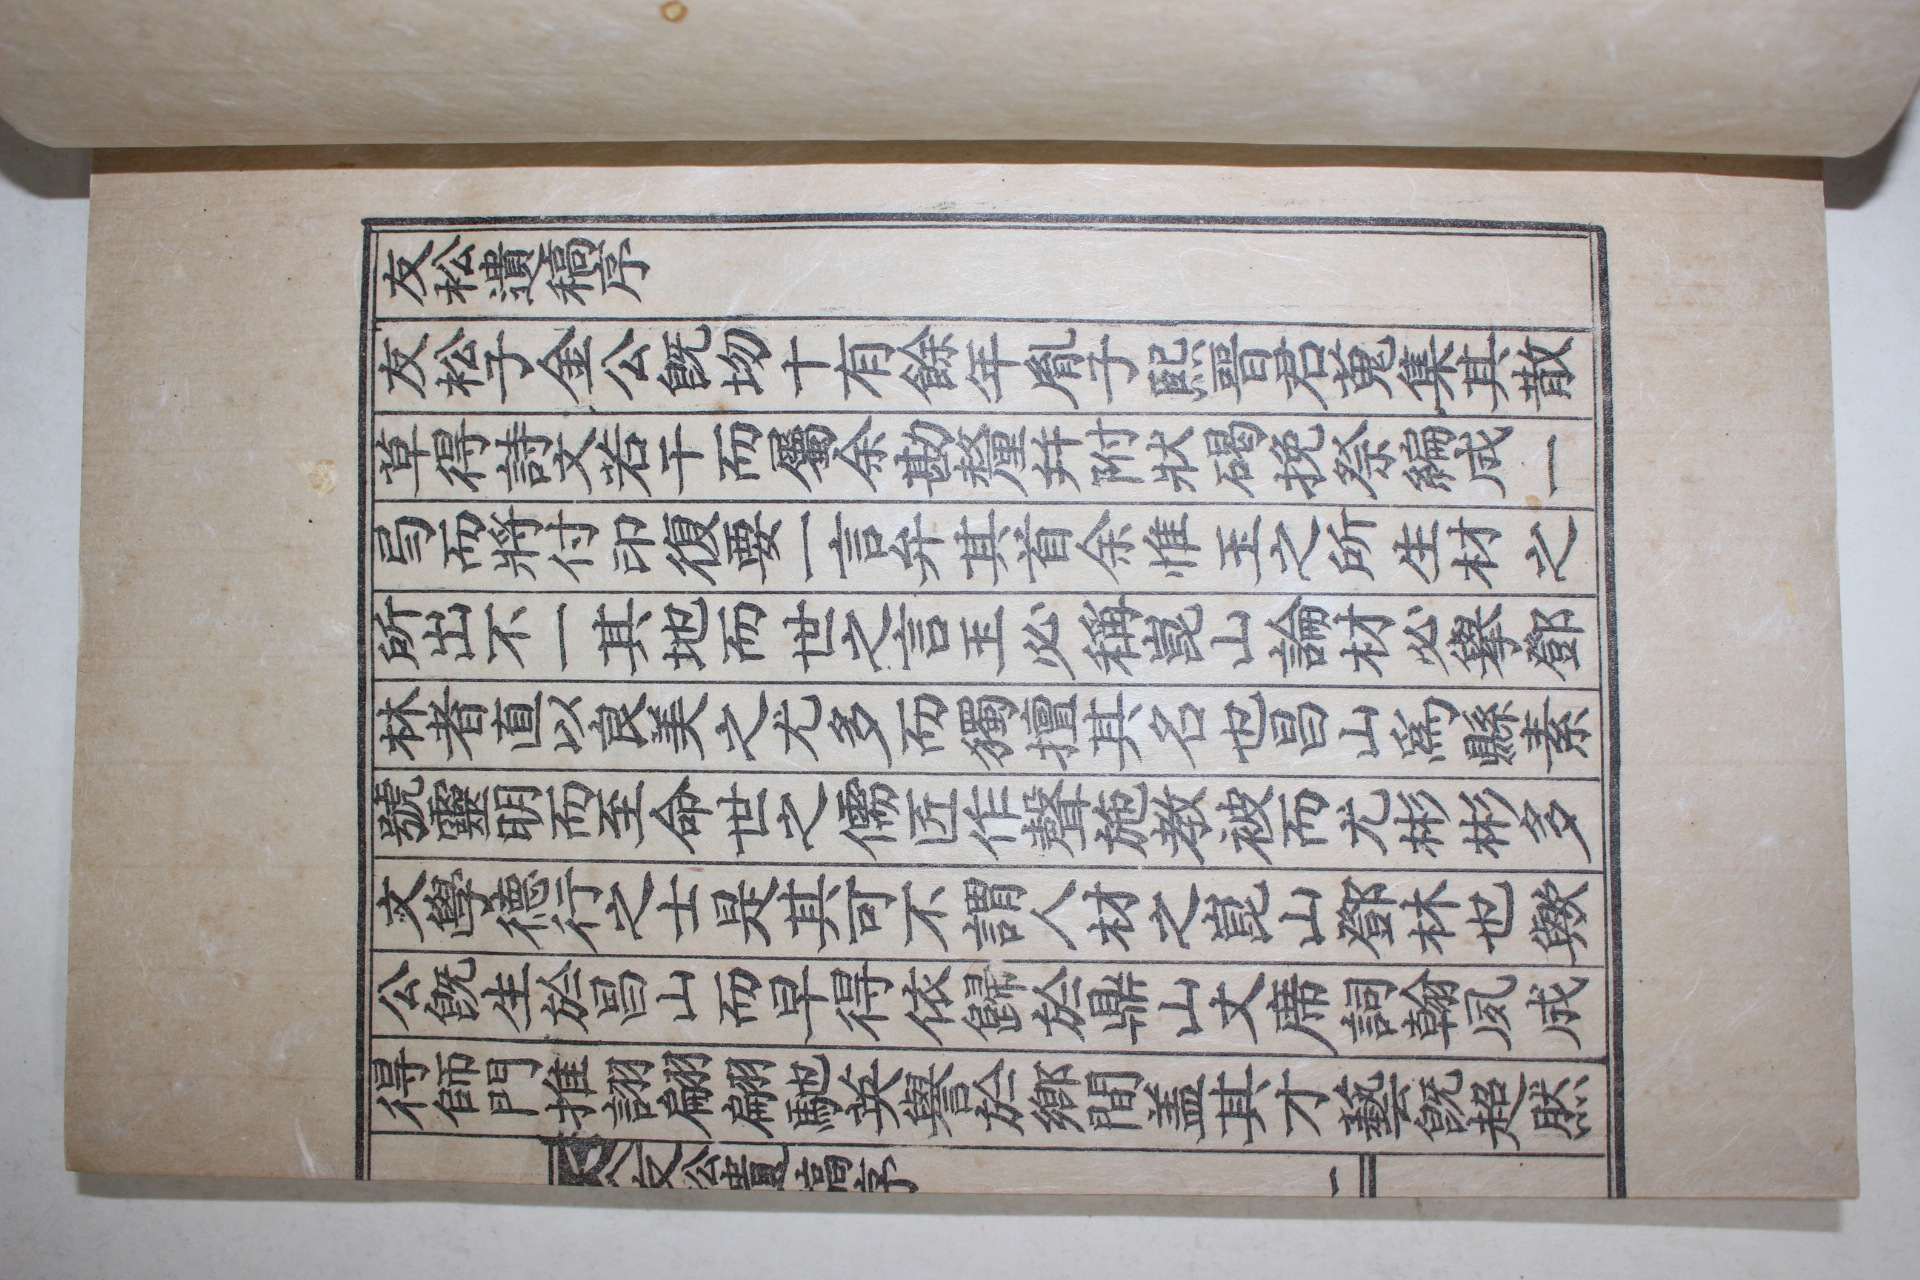 友松遺稿序
友松子金公旣歾十有餘年胤子熙晉君蒐集其散
草得詩文若干而屬余勘釐幷附狀碣挽祭編成一
弓而將付印復要一言弁其首余惟玉之所生材之
所出不一其地而世之言玉必稱崑山論材必擧鄧
林者直以良美之尤多而獨擅其名也昌山爲縣素
號靈明而至命世之儒匠作聲施教被而尤彬彬多
文學德行之士是其可不謂人材之崑山鄧林也歟
公旣生於昌山而早得依歸於鼎山丈席詞翰夙成
得師門推詡翩翩馳英譽於鄕間盖其才藝旣超然
友松遺稿序
一